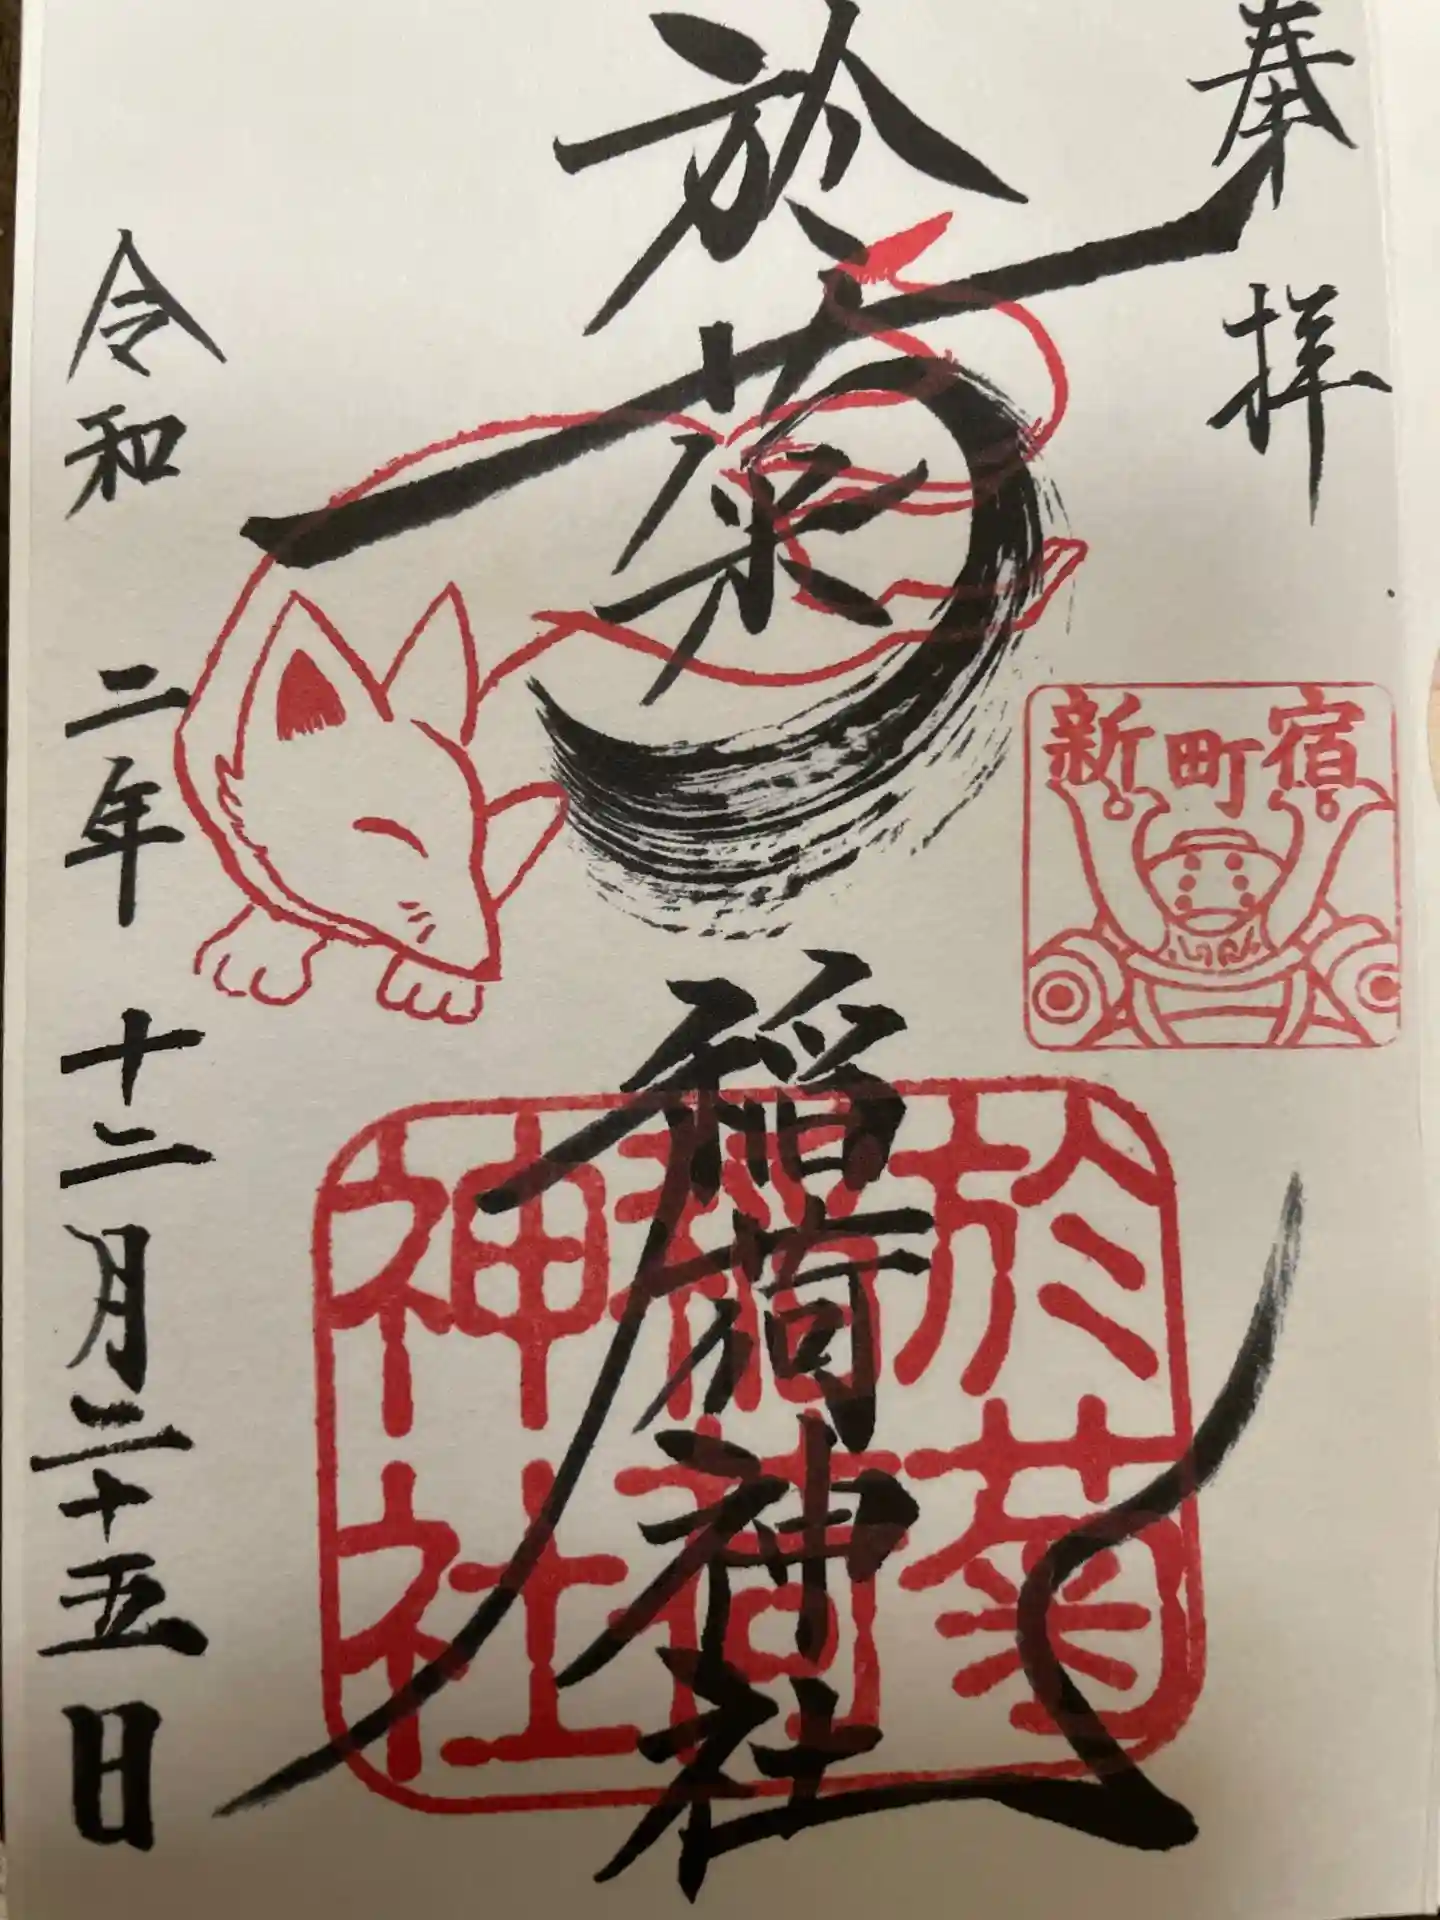 奉拝
於菊稲荷神社
新町宿
於菊
稲荷
神社
令和二年十二月二十五日